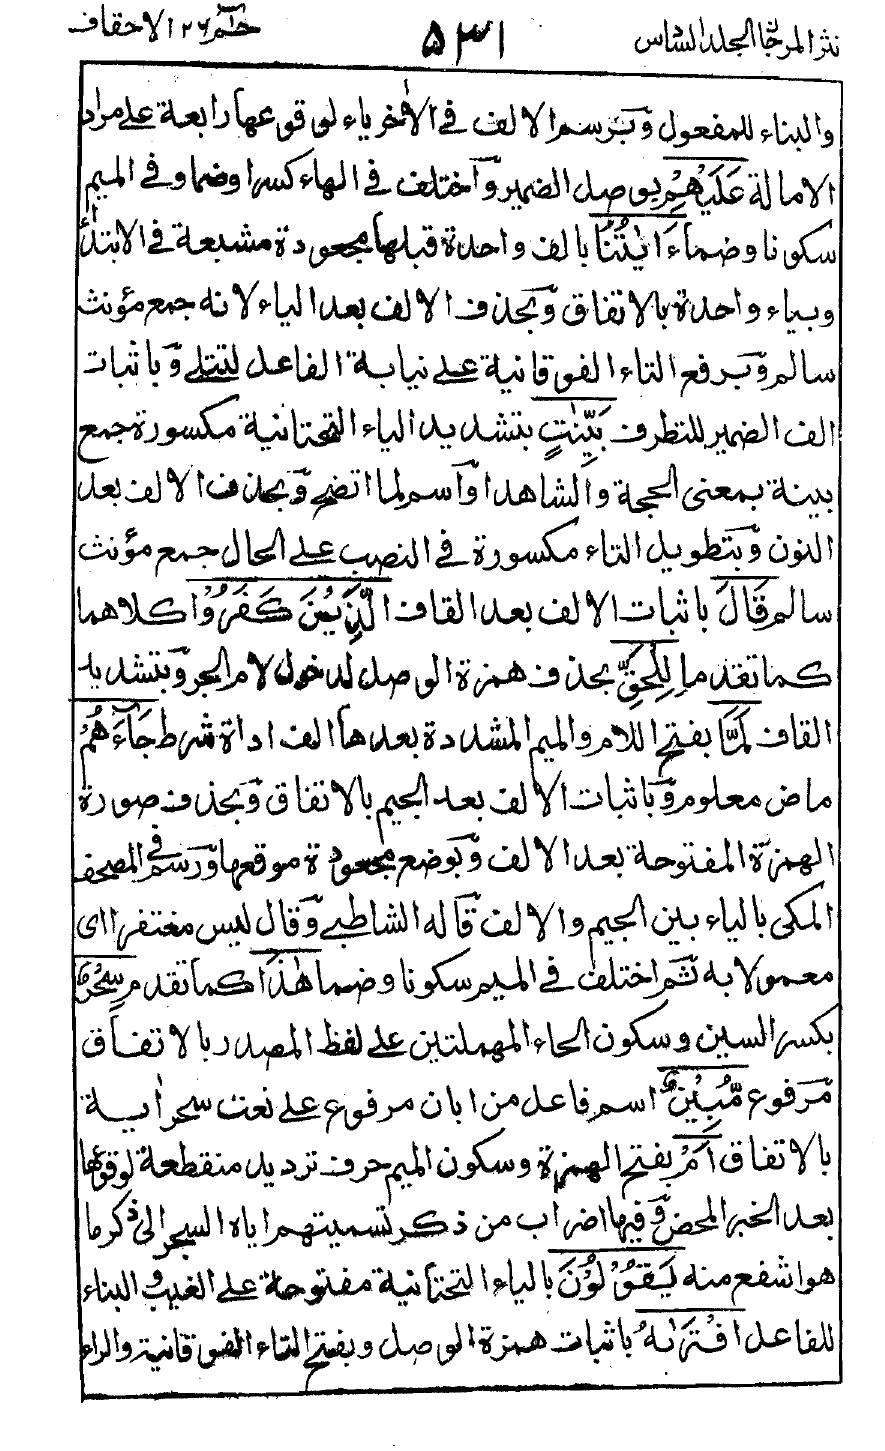 نثر المرجان الجلد السادس ٥٣١ حٰمٓ ٢٦ الاحقاف
والبناء للمفعول وَبَرسم الالف فى الاٰخر ياء لوقوعها رابعة على مراد
الامالة عَلَيْهِمْ بوصل الضمير وَاختلف فى الهاء كسرا وضما وفى الميم
سكونا وضما ءَايٰتُنَا بالف واحدة قبلها مجعودة مشبعة فى الابتداء
وبياء واحدة بالاتفاق وَبحذف الالف بعد الياء لانه جمع مؤنث
سالم وَبرفع التاء الفوقانية على نيابة الفاعل لتتلى وَباثبات
الف الضمير للتطرف بَيِّنٰتٍ بتشديد الياء التحتانية مكسورة جمع
بينة بمعنى الحجة والشاهد اواسم لما اتضح وَبحذف الالف بعد
النون وَبتطويل التاء مكسورة فى النصب على الحال جمع مؤنث
سالم قَالَ باثبات الالف بعد القاف الَّذِيْنَ كَفَرُوْا كلاهما
كما تقدم لِلْحَقِّ بحذف همزة الوصل لدخول لام الجر وَبتشديد
القاف لَمَّا بفتح اللام والميم المشددة بعدها الف اداة شرط جَآءَهُمْ
ماض معلوم وَباثبات الالف بعد الجيم بالاتفاق وَبحذف صورة
الهمزة المفتوحة بعد الالف وَبوضع مجعودة موقعها وَرسم فى المصحف
المكى بالياء بين الجيم والالف قاله الشاطبى وَقال ليس مغتفرا اى
معمولا به ثم اختلف فى الميم سكونا وضما هٰذَا كما تقدم سِحْرٌ
بكسر السين وسكون الحاء المهملتين على لفظ المصدر بالاتفاق
مرفوع مُّبِيْنٌ اسم فاعل من ابان مرفوع على نعت سحر اٰية
بالاتفاق اَمْ بفتح الهمزة وسكون الميم حرف ترديد منقطعة لوقوعها
بعد الخبر المحض وَفيها اضراب من ذكر تسميتهم اياه السحر الى ذكر ما
هو اشفع منه يَقُوْلُوْنَ بالياء التحتانية مفتوحة على الغيب والبناء
للفاعل افْتَرٰىهُ باثبات همزة الوصل وبفتح التاء الفوقانية والراء